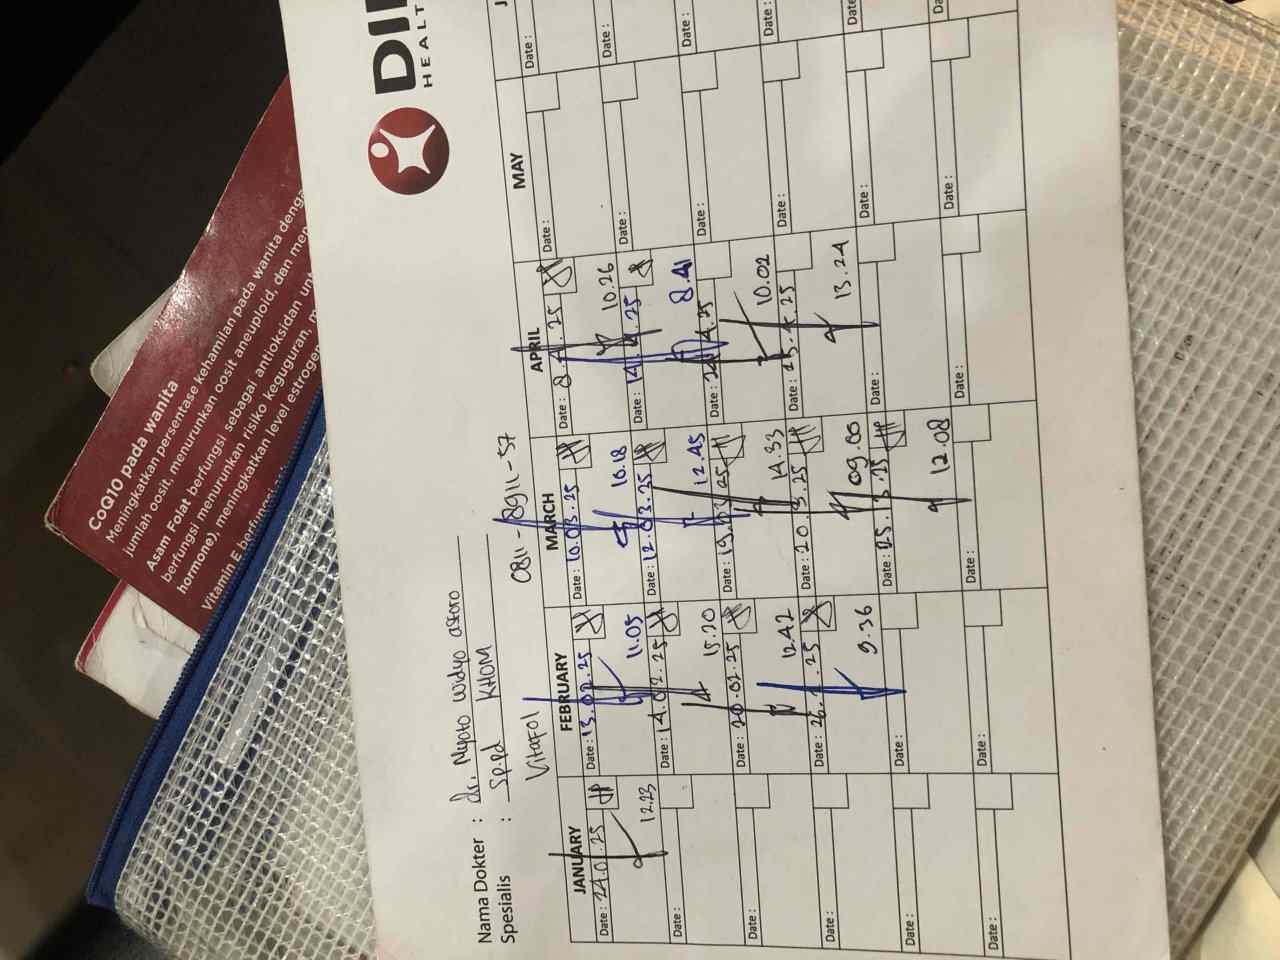 CoQ10 pada wanita
Meningkatkan persentase kehamilan pada wanita
jumlah oosit, menurunkan oosit aneuploid, dan
Asam Folat berfungsi sebagai antioksidan
berfungsi menurunkan risiko keguguran,
hormone), meningkatkan level estrogen
Vitamin E
HEALT
Nama Dokter : dr. Nyoto Widyo Astoro
Spesialis : Sp.Pd KHOM
Vitafol 0811-8911-57
JANUARY FEBRUARY MARCH APRIL MAY
Date: 24.01.25 Date: 13.02.25 Date: 10.03.25 Date: 8.4.25 Date: Date:
12.23 11.05 10.18 10.26
Date: Date: 14.02.25 Date: 12.03.25 Date: 14.4.25 Date: Date:
15.20 12.45 8.41
Date: Date: 20.02.25 Date: 19. .25 Date: .4.25 Date: Date:
12.42 14.33 10.02
Date: Date: 26.2.25 Date: 20.3.25 Date: .4.25 Date: Date:
9.36 09.00 13.24
Date: Date: Date: 25.3.25 Date: Date: Date:
12.08
Date: Date: Date: Date: Date: Da